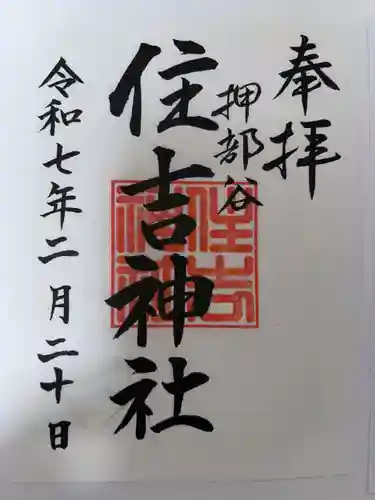 奉拝
押部谷
住吉神社
令和七年二月二十日
住吉神社